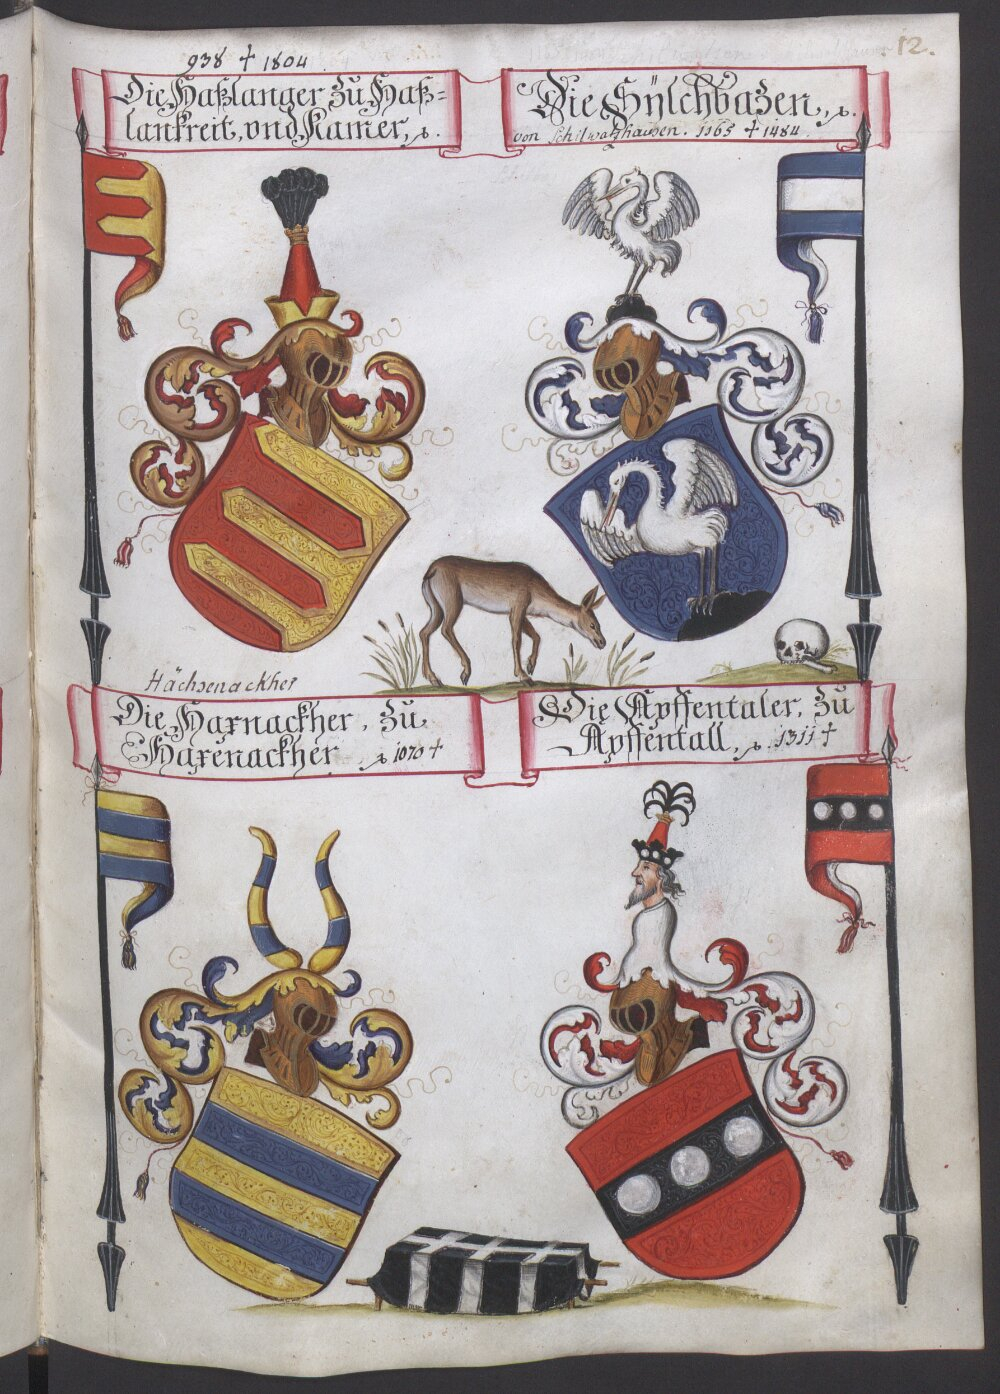 12.
938 † 1804
Die Haßlanger zu Haß=
lankreit, vnd Kamer,
Die Sÿlchbazen,
von Schilwatzhausen. 1165 † 1484.
Hächsenackher
Die Haxnackher, zu
Haxenackher 1070 †
Die Apffentaler, zu
Apffentall, 1311 †